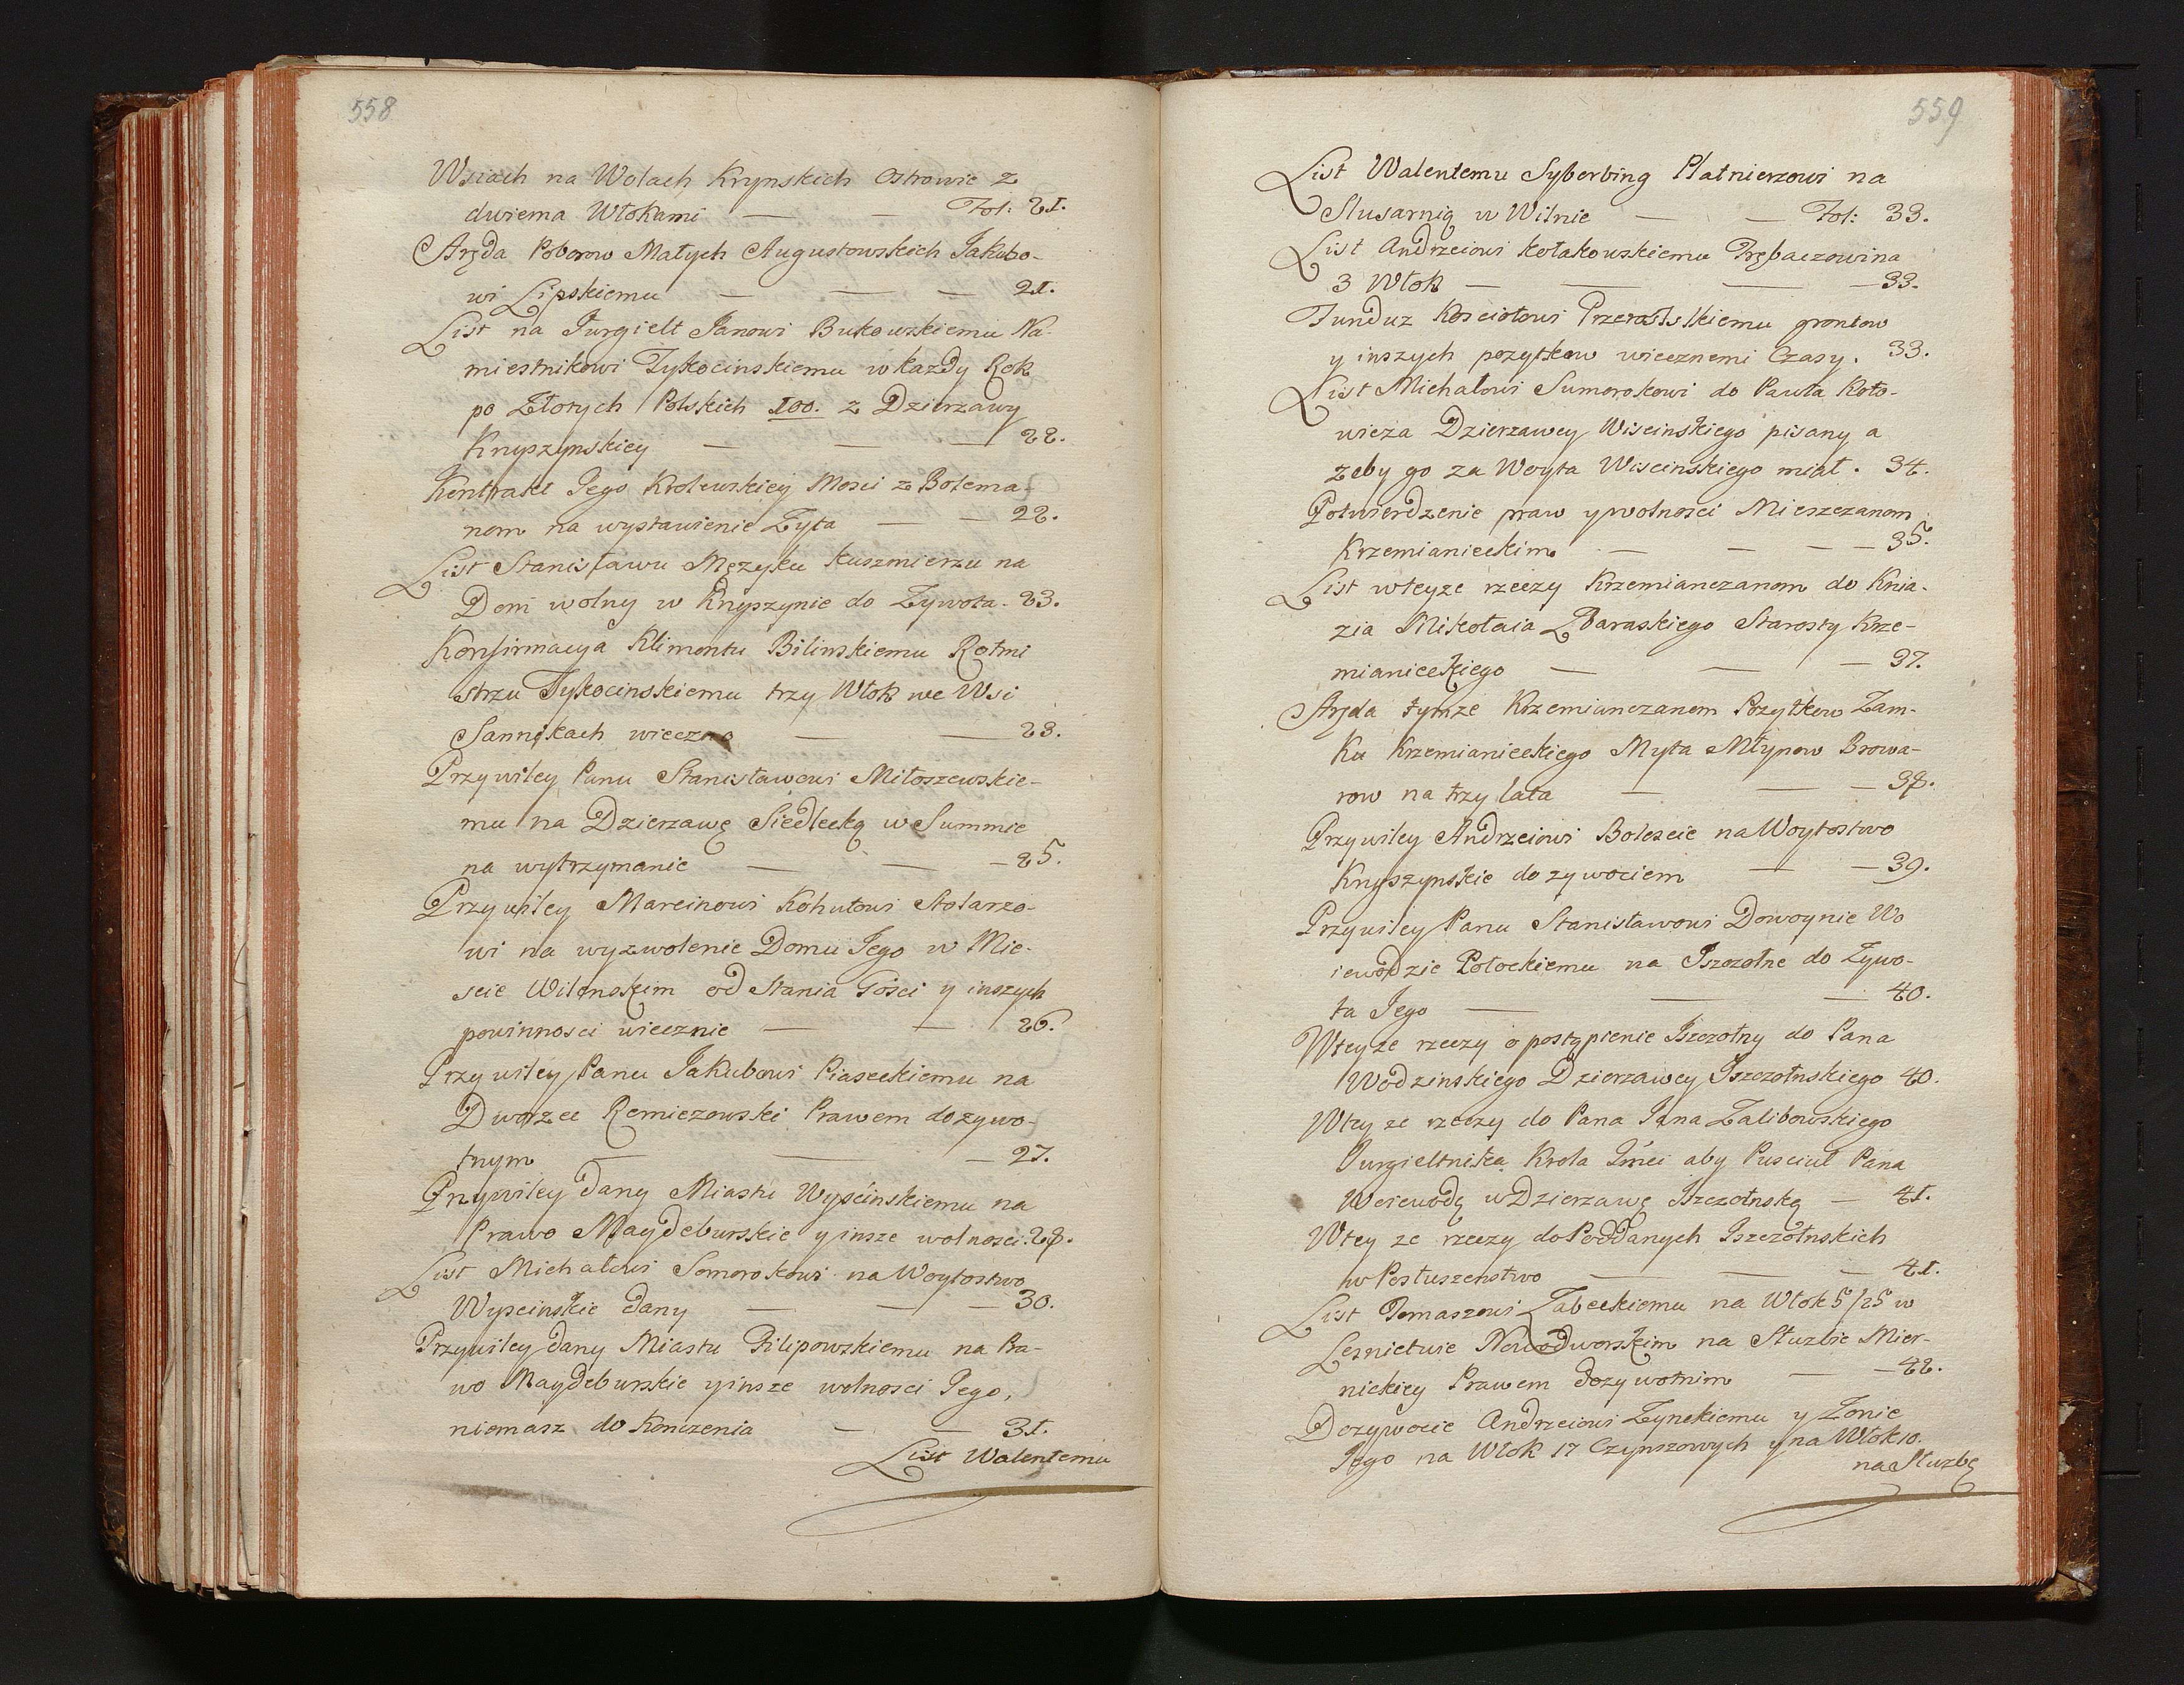 558
Wsiach na Wolach Krynskich Ostrowie z
dwiema Włokami — — Fol: 21.
Aręda Poborow Małych Augustowskich Jakubo-
wi Lipskiemu — — — 21.
List na Jurgielt Janowi Bukowskiemu Na-
miestnikowi Tykocinskiemu w kazdy Rok
po Złotych Polskich 100. z Dzierzawy
Knyszynskiey — — — 22.
Kontrakt Jego Krolewskiey Mosci z Bolema-
nem na wystawienie Zyta — — 22.
List Stanisławu Męzyku Kuszmierzu na
Dom wolny w Knyszynie do Zywota. 23.
Konfirmacya Klimontu Bilinskiemu Rotmi
strzu Tykocinskiemu trzy Włok we Wsi
Sannikach wieczna — — 23.
Przywiley Panu Stanisławowi Miłoszewskie-
mu na Dzierzawę Siedlecką w Summie
na wytrzymanie — — — 25.
Przywiley Marcinowi Kohutowi Stolarzo-
wi na wyzwolenie Domu Jego w Mie-
scie Wilenskim od Stania Gości y inszych
powinnosci wiecznie — — 26.
Przywiley Panu Jakubowi Piaseckiemu na
Dworzec Remiezowski Prawem dozywo-
tnym — — — 27.
Przywiley dany Miastu Wyscinskiemu na
Prawo Magdeburskie y insze wolnosci. 28.
List Michałowi Somorokowi na Woytostwo
Wyscinskie dany — — — 30.
Przywiley dany Miastu Filipowskiemu na Pra-
wo Magdeburskie y insze wolnosci Jego,
niemasz do Konczenia — — 31.
List Walentemu
559
List Walentemu Syberbing Płatnierzowi na
Slusarnią w Wilnie — — Fol: 33.
List Andrzeiowi Kołakowskiemu Trębaczowi na
3 Włok — — — — 33.
Fundusz Kosciołowi Przerostskiemu grontow
y inszych pozytkow wiecznemi Czasy. 33.
List Michałowi Sumorokowi do Pawła Koto-
wicza Dzierzawcy Wiscinskiego pisany a
zeby go za Woyta Wiscinskiego miał. 34.
Potwierdzenie praw y wolnosci Mieszczanom
Krzemianieckim — — — — 35.
List w teyze rzeczy Krzemianczanom do Knia-
zia Mikołaia Zbaraskiego Starosty Krze-
mianieckiego — — — 37.
Aręda tymze Krzemianczanom Pozytkow Zam-
ku Krzemianieckiego Myta Młynow Browa-
row na trzy lata — — — 38.
Przywiley Andrzeiowi Bolescie na Woytostwo
Knyszynskie dozywociem — — 39.
Przywiley Panu Stanisławowi Dowoynie Wo
iewodzie Połockiemu na Iszczołne do Zywo-
ta Jego — — — 40.
W teyze rzeczy o postąpienie Iszczołny do Pana
Wodzinskiego Dzierzawcy Iszczołnskiego 40.
W tey ze rzeczy do Pana Jana Zalibowskiego
Jurgieltnika Krola Jmci aby Pusciul Pana
Woiewodę w Dzierzawę Iszczołnską — 41.
W tey ze rzeczy do Poddanych Iszczołnskich
w Posłuszenstwo — — — 41.
List Tomaszowi Zabeckiemu na Włok 5/25 w
Lesnictwie Nowodworskim na Słuzbie Mier-
nickiey Prawem dozywotnim — — 42.
Dozywocie Andrzeiowi Zynckiemu y Zonie
Jego na Włok 17 Czynszowych y na Włok 10.
na Słuzbę